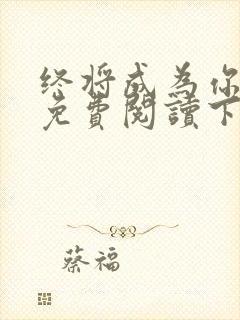 终将成为你
免費閱讀下
蔡福